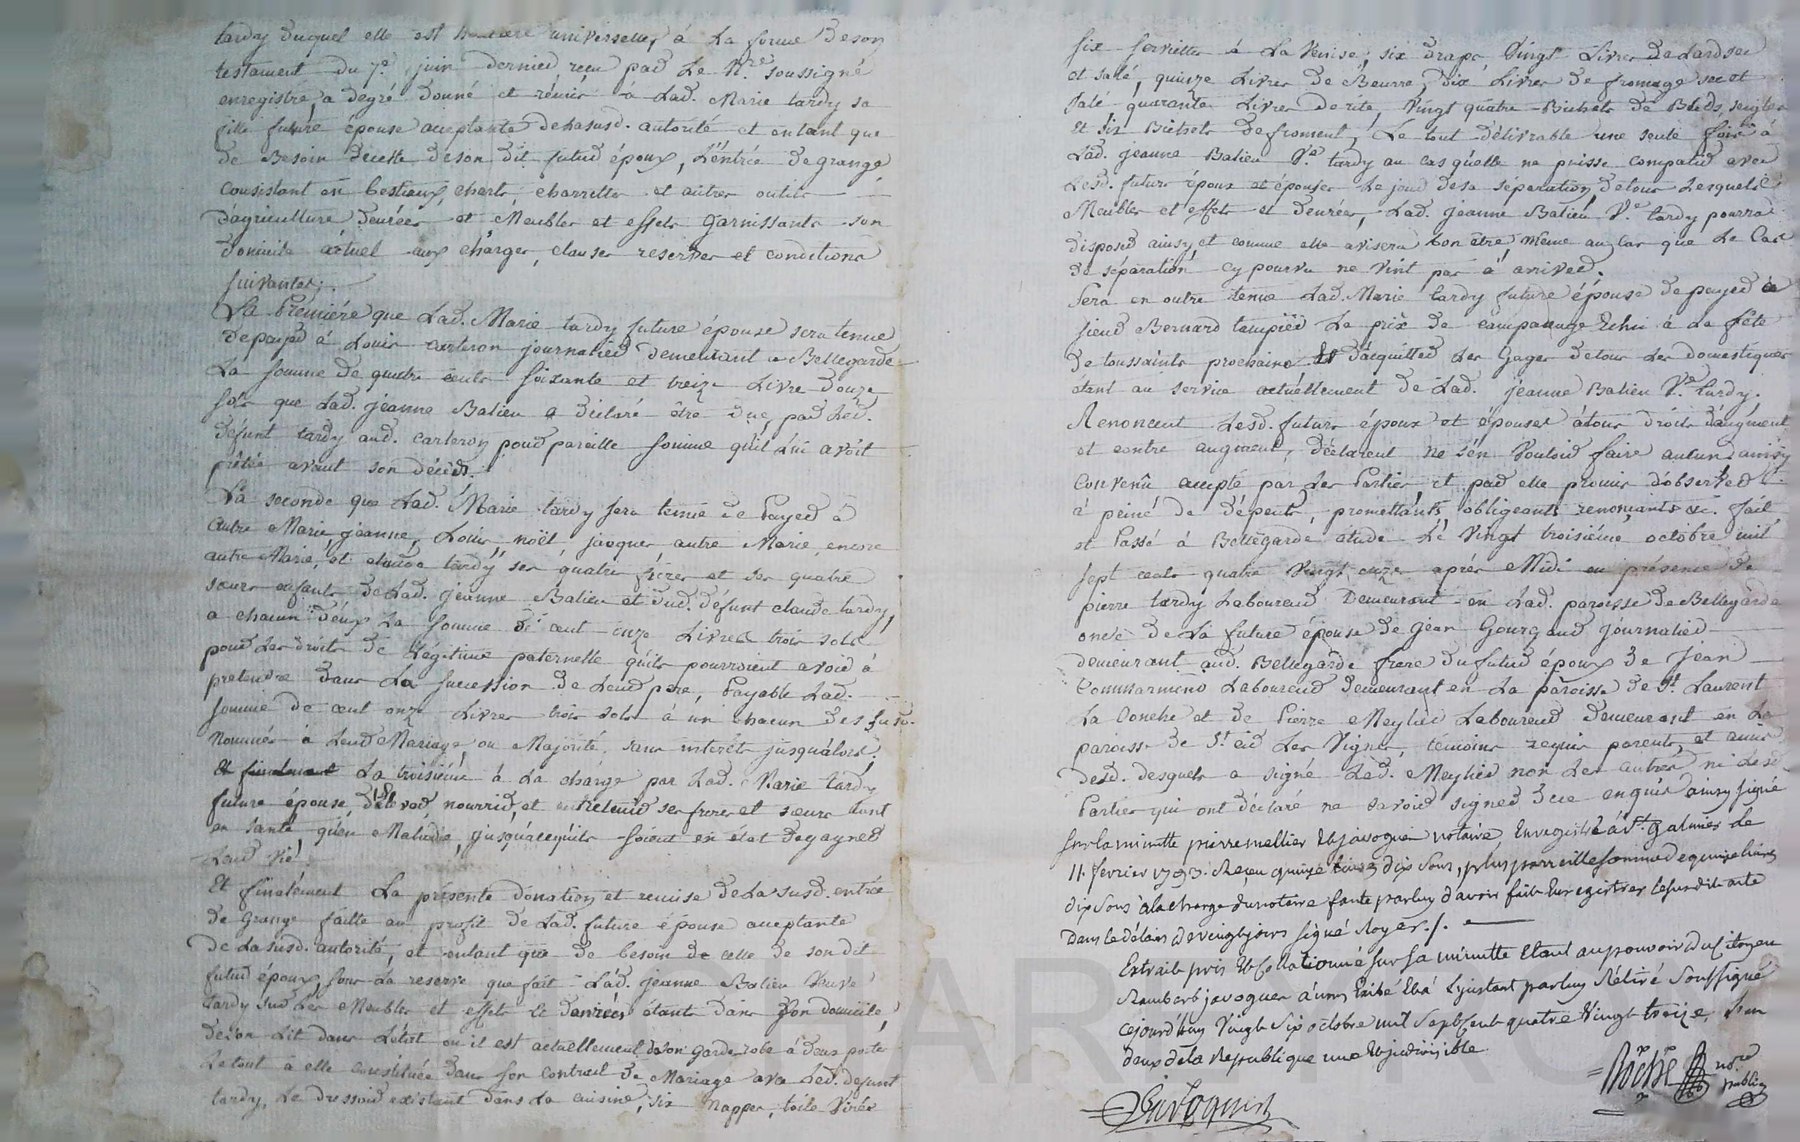 tardy duquel elle est héritière universelle, à La forme de son
testament du 7e. juin dernier reçu par Le Nre. soussigné
enregistré, a degré donné et rémis à Lad. Marie tardy sa
fille future épouse acceptante de lasusd. autorité et entant que
de Besoin decelle de son dit futur époux, L'entrée de grange
consistant en bestiaux, chars, charrettes et autres outils
d'agriculture denrées et Meubles et effets garnissants son
domicile actuel aux charges, clauses reserves et conditions
suivantes;
La Première que Lad. Marie tardy future épouse sera tenue
depayer à Louis carteron journalier demeurant a Bellegarde
La somme de quatre cents soixante et treize Livre douze
sols que Lad. jeanne Balieu a déclaré être due par Led.
défunt tardy aud. carteron pour pareille somme qu'il Lui avoit
prêtée avant son décèds.
La seconde que Lad. Marie tardy sera tenüe de Payer à
autre Marie jeanne, Louis noël, jacques, autre Marie, encore
autre Marie, et claude tardy ses quatre frères et ses quatre
sœurs enfants de Lad. jeanne Balieu et dud. défunt claude tardy,
a chacun d'eux La somme de cent onze Livres trois sols
pour Les droits de Légitime paternelle qu'ils pourroient avoir à
prétendre dans La succession de Leur père, Payable Lad.
somme de cent onze Livres trois sols à un chacun des susd.
Nommés à Leur Mariage ou Majorité, sans interêts jusqu'alors.
Et finalement La troisième à La charge par Lad. Marie tardy
future épouse, d'élever, nourrir, et entretenir ses freres et sœurs tant
en santé qu'en Maladie, jusqu'acequ'ils soient en état de gagner
Leur vie.
Et finalement La présente donation et remise de La susd. entrée
de Grange faitte au profit de Lad. future épouse acceptante
de La susd. autorité, et entant que de besoin de celle de son dit
futur époux, sous La reserve que fait Lad. jeanne Balieu Veuve
tardy sur Les Meubles et effets et denrées étants dans son domicile,
de son Lit dans L'état ou il est actuellement, de son garderobe à deux portes
Le tout à elle constitués dans son contrat de Mariage avec Led. defunt
tardy, Le dressoir existant dans La cuisine, six Nappes, toile
six serviettes à La Venise, six draps, Vingt Livres de Lard sec
et salé, quinze Livres de Beurre, dix Livres de fromage sec et
salé quarante Livres de rite, Vingt quatre Bichets de Bleds, seigles
et six Bichets de froment, Le tout délivrable une seule fois à
Lad. jeanne Balieu Ve. tardy au cas qu'elle ne puisse compatir avec
Lesd. futurs époux et épouses Le jour de sa séparation, de tous Lesquels
Meubles et effets et denrées, Lad. jeanne Balieu Ve. tardy pourra
disposer ainsy et comme elle avisera bon être, même au cas que Le Cas
de séparation cy pourvu ne vint pas à arriver.
Sera en outre tenue Lad. Marie tardy future épouse de payer à
sieur Bernard Le prix de Echu à La fête
de toussaints prochaine Et d'acquitter Les Gages de tous Les domestiques
étant au service actuellement de Lad. jeanne Balieu Ve. tardy.
Renoncent Lesd. futurs époux et épouses à tous droits d'augment
et contre augment, déclarent ne s'en Vouloir faire aucuns ainsy
Convenû accepté par Les Parties et par elle promis d'observer
à peine de dépents, promettants obligeants renonçants &c. fait
et Passé à Bellegarde étude Le Vingt troisiéme octobre mil
sept cents quatre Vingt onze après Midi en présence de
pierre tardy Laboureur Demeurant en Lad. paroisse de Bellegarde
oncle de La future épouse de jean Gourgaud journalier
demeurant aud. Bellegarde frere du futur époux de Jean
Laboureur demeurant en La paroisse de St. Laurent
La Conche et de Pierre Meylier Laboureur demeurant en La
paroisse de St. Cir Les Vignes, témoins requis parents, et amis
desd. desquels a signé Led. Meylier non Les autres ni Lesd.
Parties qui ont déclaré ne savoir signer de ce enquis ainsy signé
sur la minutte pierre mellier Et javogue notaire, Enregistré à St. galmier le
11. fevrier 1793. Reçu quinze livres dix sous, plus parreille somme de quinze livres
dix sous à la charge du notaire faute par luy d'avoir fait Enregistrer lesusdit acte
dans le délais de vingt jours signé Royer./.
Extrait pris Et Collationné sur sa minutte Etant au pouvoir du Citoyen
Rambert javogues à nous Exibé Et à L'instant par luy Rétiré Soussigné
cejourd'huy Vingt six octobre mil sept Cent quatre Vingt treize. L'an
deux de la République une Et indivisible
Javogues
Roche nore public